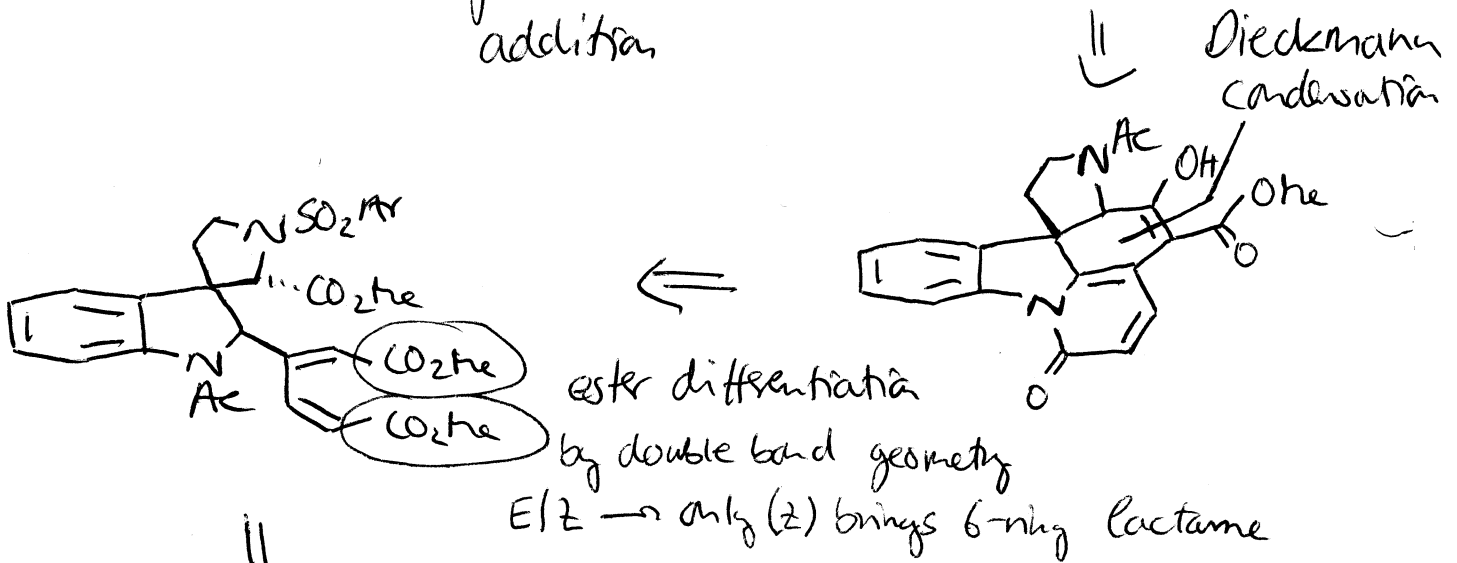 addition
Dieckmann
condensation
NAc
OH
OMe
O
N
O
NSO2Ar
CO2Me
N
Ac
CO2Me
CO2Me
ester differentiation
by double bond geometry
E/Z → only (Z) brings 6-ring lactame